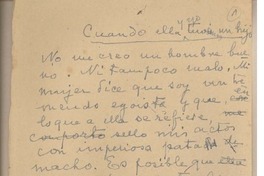 Cuando ella y yo, un hijo
No me creo un hombre bue
no. Ni tampoco malo. Mi
mujer dice que soy un tre
mendo egoista y que, en
lo que a ella se refiere,
comporto sello mis actos
con imperiosa pata de
macho. Es posible que